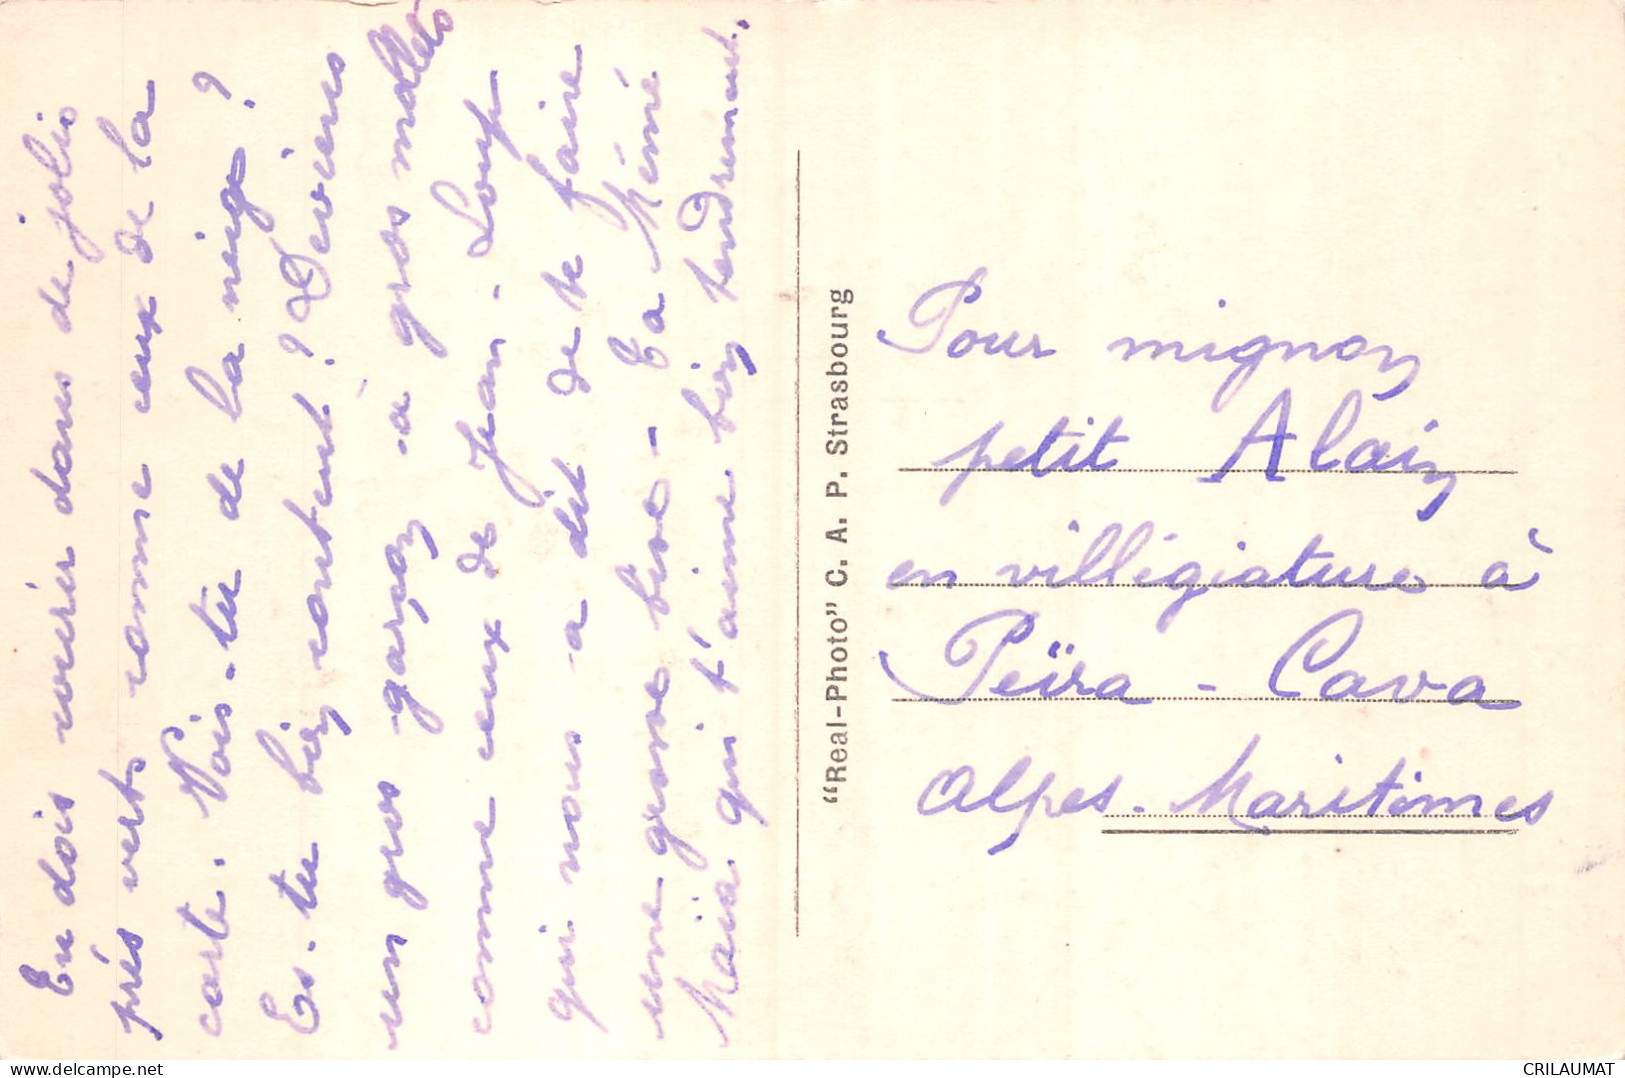 Tu dois courir dans de jolis
prés verts comme ceux de la
carte. Vois-tu de la neige ?
Es-tu bien content ? Deviens
un gros garçon à gros mollets
comme ceux de Jean-Loup
qui nous a dit de te faire
une grosse bise - Ta Mémé
Maïa qui t'aime bien tendrement.
"Real-Photo" C. A. P. Strasbourg
Pour mignon
petit Alain
en villégiature à
Peïra-Cava
Alpes-Maritimes
delcampe.net
CRILAUMAT